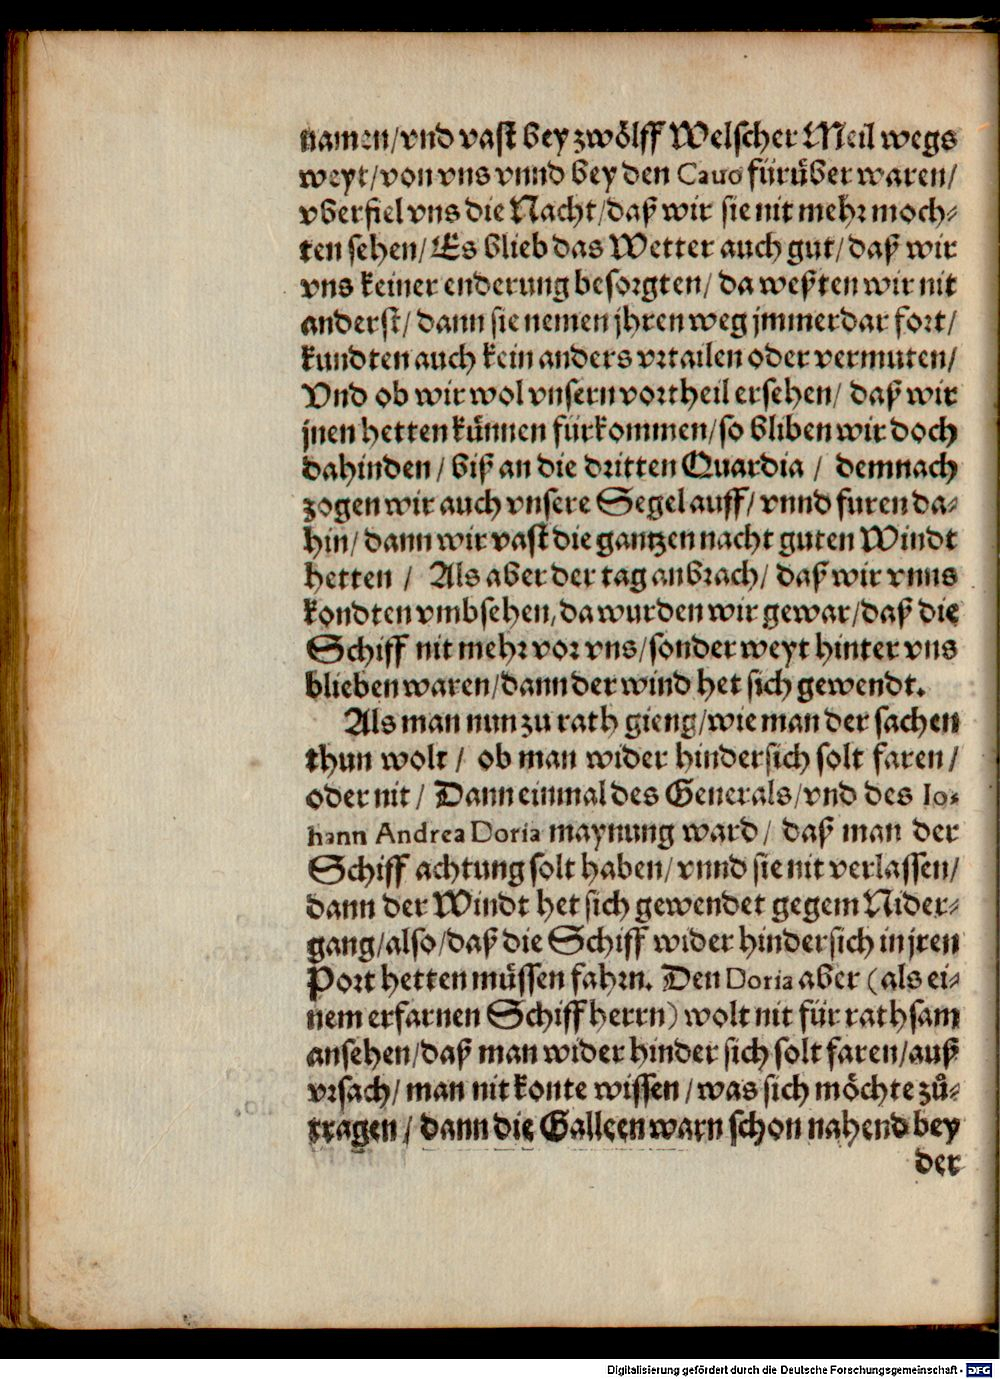 namen/vnd vast bey zwölff Welscher Meil wegs
weyt/von vns vnnd bey den Cauo fürüber waren/
vberfiel vns die Nacht/daß wir sie nit mehr moch⸗
ten sehen/Es blieb das Wetter auch gut/daß wir
vns keiner enderung besorgten/da weßten wir nit
anderst/dann sie nemen jhren weg jmmerdar fort/
kundten auch kein anders vrtailen oder vermuten/
Vnd ob wir wol vnsern vortheil ersehen/daß wir
jnen hetten künnen fürkommen/so bliben wir doch
dahinden/biß an die dritten Quardia/demnach
zogen wir auch vnsere Segel auff/vnnd furen da⸗
hin/dann wir vast die gantzen nacht guten Windt
hetten/Als aber der tag anbrach/daß wir vnns
kondten vmbsehen,da wurden wir gewar/daß die
Schiff nit mehr vor vns/sonder weyt hinter vns
blieben waren/dann der wind het sich gewendt.
Als man nun zu rath gieng/wie man der sachen
thun wolt/ob man wider hindersich solt faren/
oder nit/Dann einmal des Generals/vnd des Io⸗
hann Andrea Doria maynung ward/daß man der
Schiff achtung solt haben/vnnd sie nit verlassen/
dann der Windt het sich gewendet gegem Nider⸗
gang/also/daß die Schiff wider hindersich in jren
Port hetten müssen fahrn. Den Doria aber (als ei⸗
nem erfarnen Schiffherrn) wolt nit für rathsam
ansehen/daß man wider hinder sich solt faren/auß
vrsach/man nit konte wissen/was sich möchte zů⸗
tragen/dann die Galleen warn schon nahend bey
der
Digitalisierung gefördert durch die Deutsche Forschungsgemeinschaft - DFG